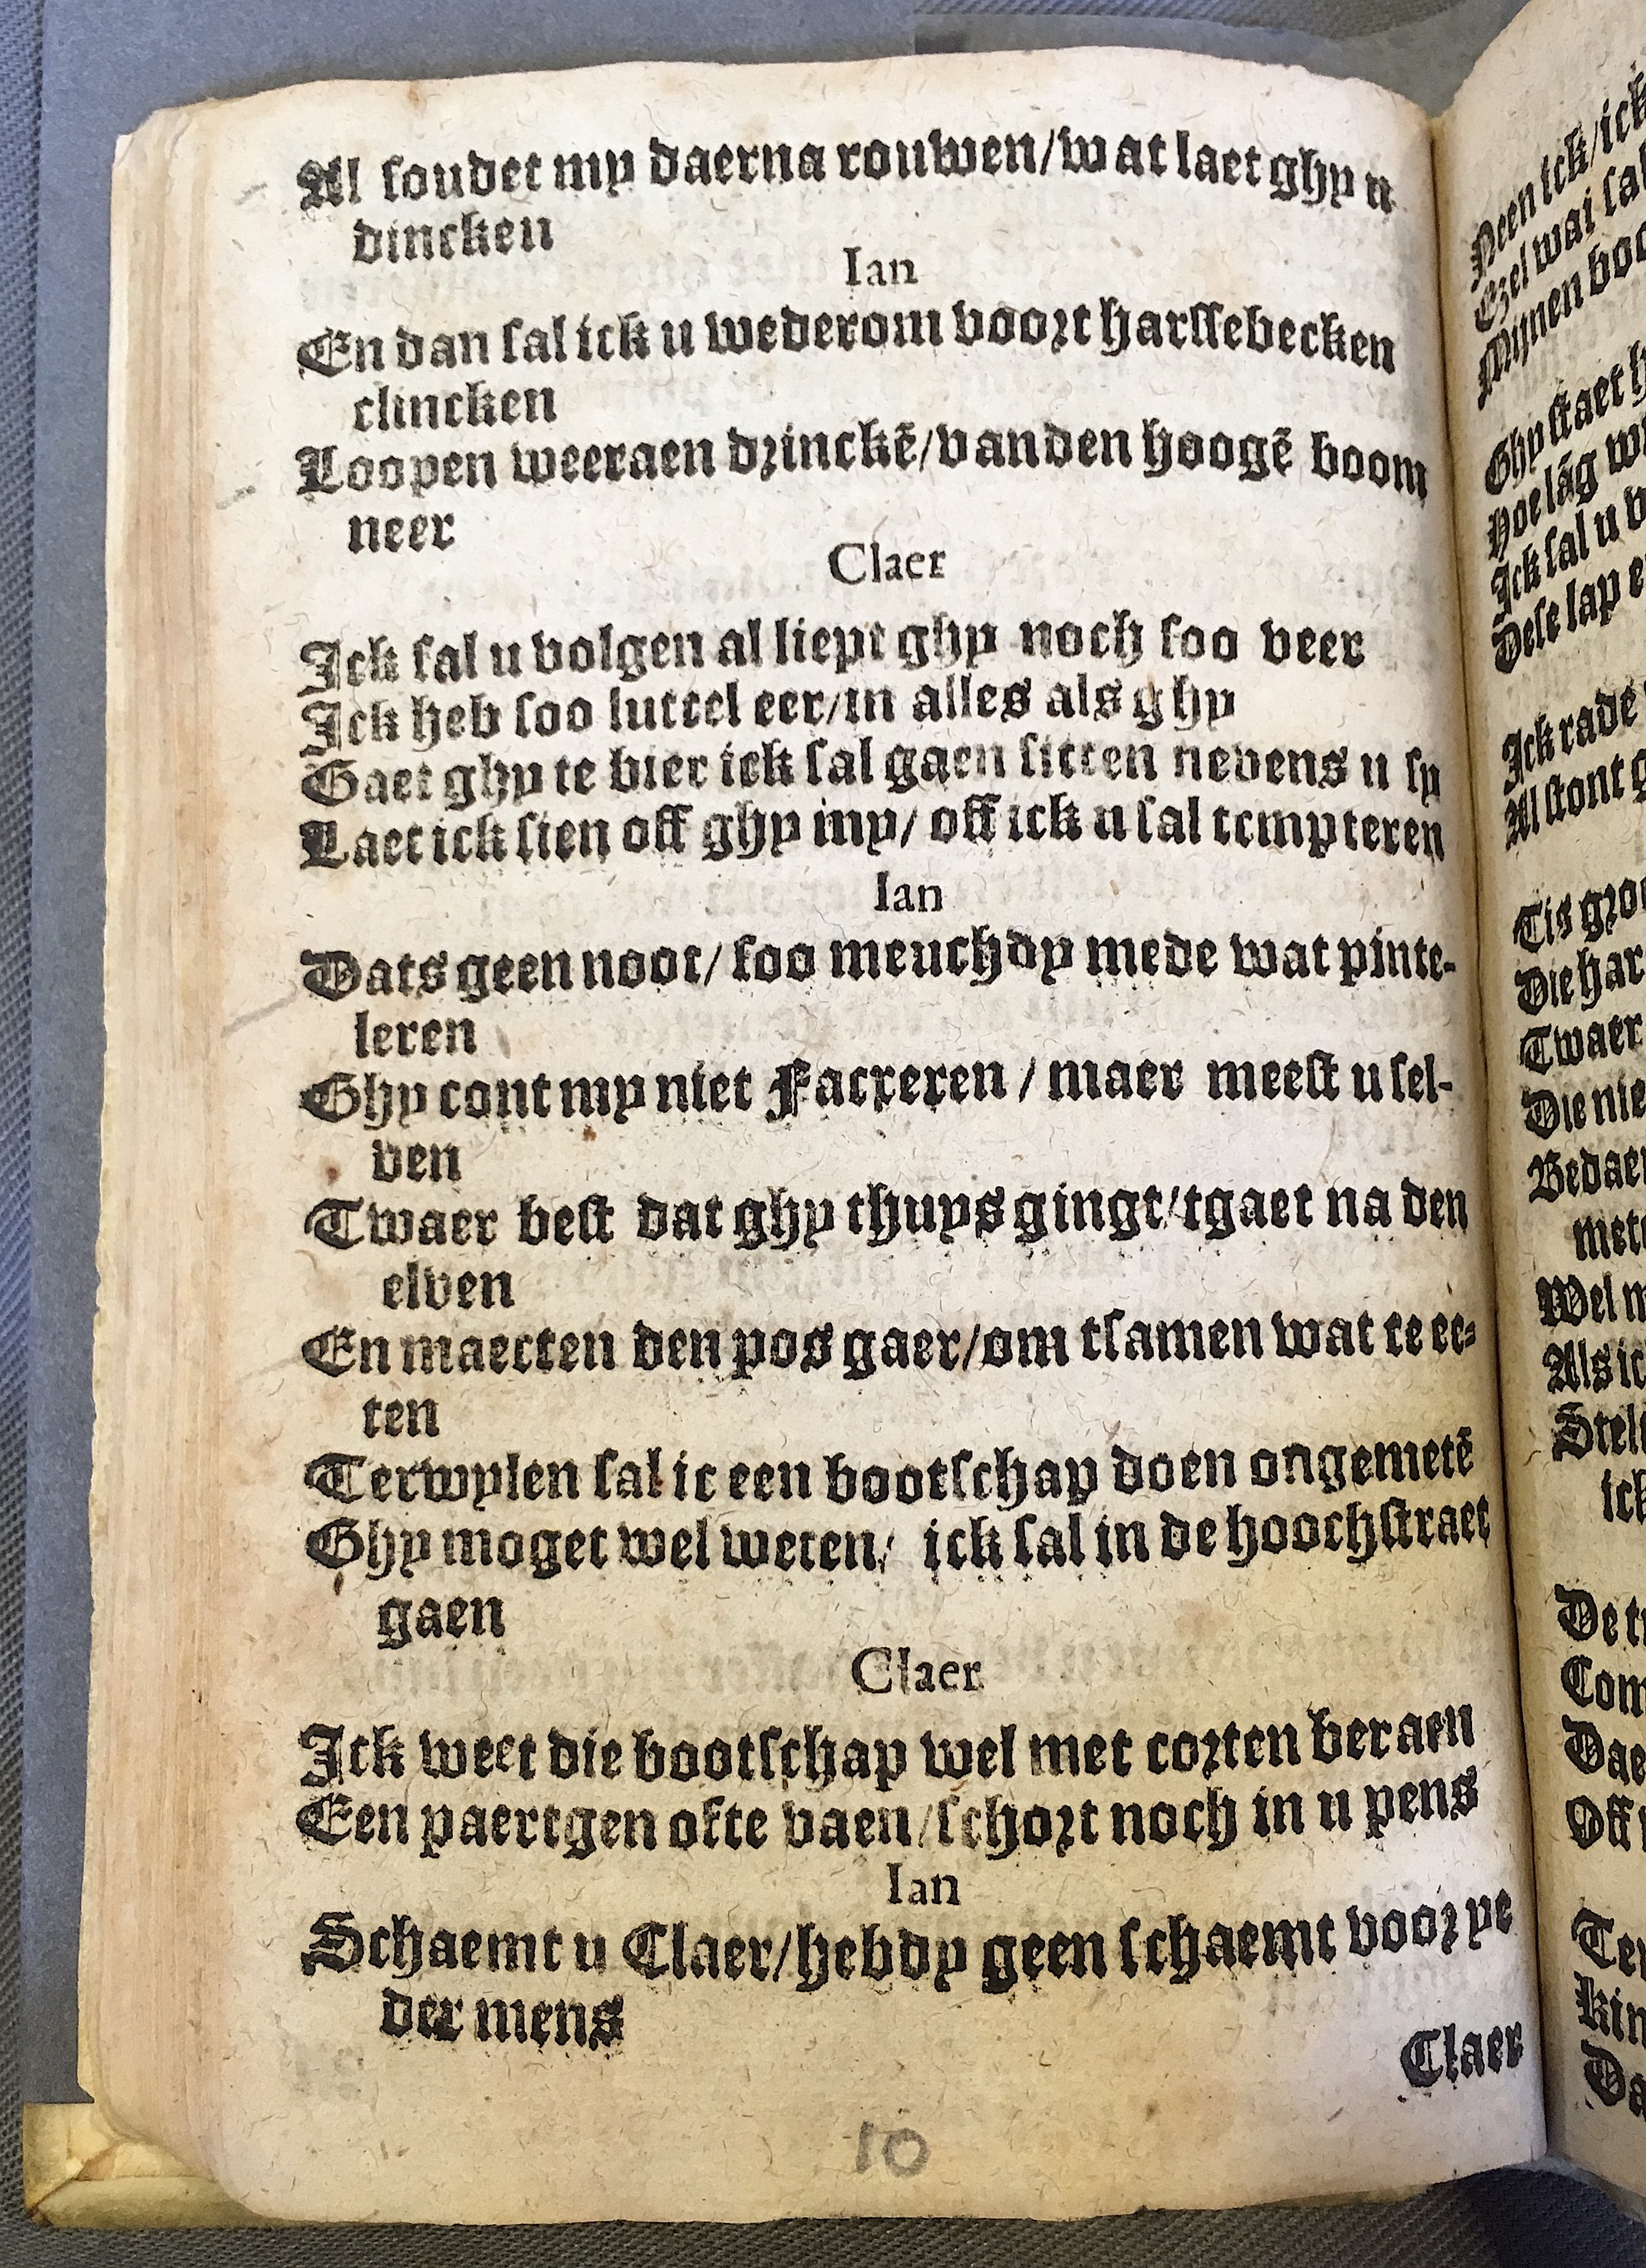 Al soudet my daerna rouwen/wat laet ghy u
dincken
Ian
En dan sal ick u wederom voort harssebecken
clincken
Loopen weeraen drinckẽ/vanden hoogẽ boom
neer
Claer
Ick sal u volgen al liept ghy noch soo veer
Ick heb soo luttel eer/in alles als ghy
Gaet ghy te bier ick sal gaen sitten nevens u sy
Laet ick sien off ghy my/ off ick u sal tempteren
Ian
Dats geen noot/ soo meuchdy mede wat pinte-
leren
Ghy cont my niet Facxeren / maer meest u sel-
ven
Twaer best dat ghy thuys gingt/tgaet na den
elven
En maecten den pos gaer/om tsamen wat te ee-
ten
Terwylen sal ic een bootschap doen ongemetẽ
Ghy moget wel weten/ ick sal in de hoochstraet
gaen
Claer
Ick weet die bootschap wel met corten beraen
Een paertgen ofte vaen/schort noch in u pens
Ian
Schaemt u Claer/hebdy geen schaemt voor ye
der mens
Claer
10
Neen ick/ick
Ezel wai sal
Mijnen boo
Ghy staet h
Hoe lãg wi
Ick sal u v
Dese lap e
Ick rade
Al stont g
Tis groo
Die har
Twaer
Die nie
Bedaer
mets
Wel m
Als ic
Stell
ick
De tr
Com
Dae
Off
Ter
Kin
Da